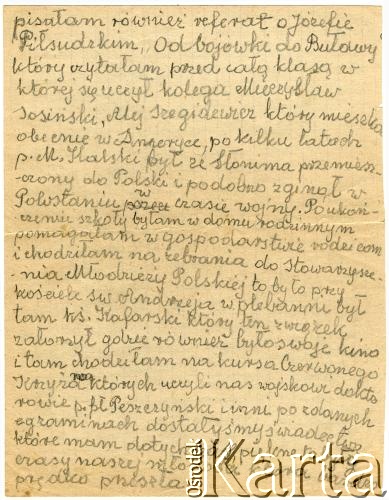 pisałam również referat o Józefie
Piłsudzkim, „Od bojówki do Buławy
który czytałam przed całą klasą w
której się uczył kolega Mieczysław
Sosiński, Alej Szegidewicz który mieszka
obecnie w Ameryce, po kilku latach
p. M. Halski był ze Słonima przemiesz-
czony do Polski i podobno zginął w
Powstaniu w czasie wojny. Po ukoń-
czeniu szkoły byłam w domu rodzinnym
pomagałam w gospodarstwie rodzicom
i chodziłam na zebrania do Stowarzysze-
nia Młodzieży Polskiej to było przy
kościele św. Andrzeja w plebanni był
tam ks. Kafarski który ten związek
założył gdzie również było swoje kino
i tam chodziłam na kursa Czerwonego
Krzyża na których uczyli nas wojskowi dokto
rowie p. płk Peszczynski i inni po zdanych
egzaminach dostałyśmy świadectwa
które mam dotychczas, piękne były
czasy naszej młodości
prędko przeszła
Ośrodek
Karta